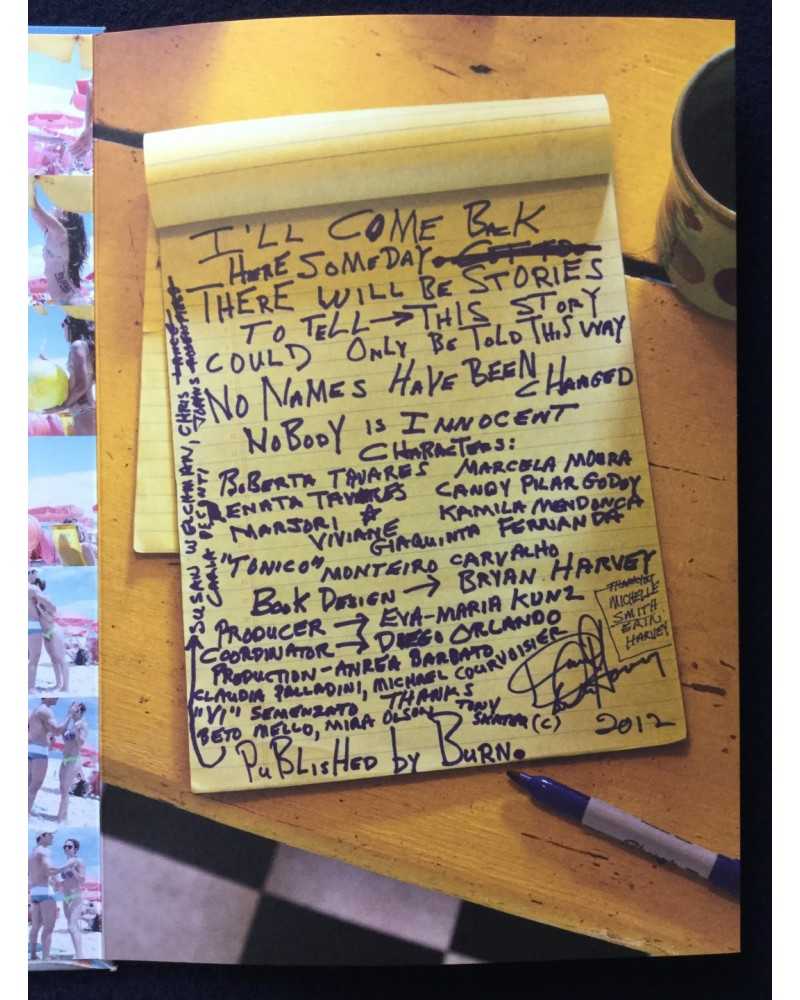 I'LL COME BACK
HERE SOMEDAY
THERE WILL BE STORIES
TO TELL → THIS STORY
COULD ONLY BE TOLD THIS WAY
NO NAMES HAVE BEEN CHANGED
NOBODY IS INNOCENT
CHARACTERS:
ROBERTA TAVARES MARCELA MOURA
RENATA TAVARES CANDY PILAR GODOY
MARJORI ☆ KAMILA MENDONCA
VIVIANE GIAQUINTA FERNANDA
"TONICO" MONTEIRO CARVALHO
BOOK DESIGN → BRYAN HARVEY
PRODUCER → EVA-MARIA KUNZ
COORDINATOR → DIEGO ORLANDO
PRODUCTION - ANREA BARBATO
CLAUDIA PALLADINI, MICHAEL COURVOISIER
"VI" SEMENZATO THANKS
BETO MELLO, MIRA OLSON TONY
(C) 2012
PUBLISHED by BURN.
SUSAN WELCHMAN, CHRIS
CARLA
MICHELLE
SMITH
ERIN
HARVEY
Sharpie